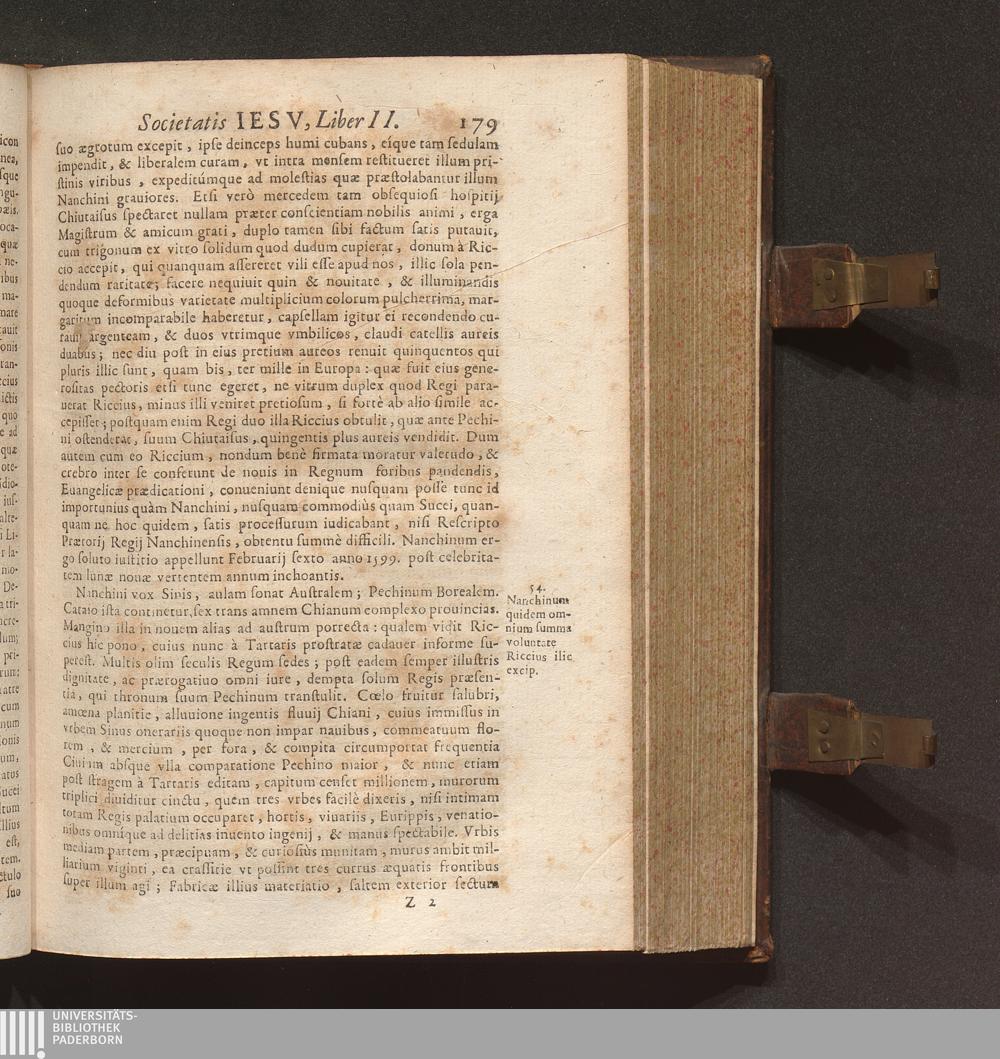 Societatis IESV, Liber II. 179
suo ægrotum excepit, ipse deinceps humi cubans, eíque tam sedulam
impendit, & liberalem curam, vt intra mensem restitueret illum pri-
stinis viribus, expeditúmque ad molestias quæ præstolabantur illum
Nanchini grauiores. Etsi verò mercedem tam obsequiosi hospitij
Chiutaisus spectaret nullam præter conscientiam nobilis animi, erga
Magistrum & amicum grati, duplo tamen sibi factum satis putauit,
cum trigonum ex vitro solidum quod dudum cupierat, donum à Ric-
cio accepit, qui quanquam assereret vili esse apud nos, illic sola pen-
dendum raritate; facere nequiuit quin & nouitate, & illuminandis
quoque deformibus varietate multiplicium colorum pulcherrima, mar-
garitum incomparabile haberetur, capsellam igitur ei recondendo cu-
rauit argenteam, & duos vtrimque vmbilicos, claudi catellis aureis
duabus; nec diu post in eius pretium aureos renuit quinquentos qui
pluris illic sunt, quam bis, ter mille in Europa: quæ fuit eius gene-
rositas pectoris etsi tunc egeret, ne vitrum duplex quod Regi para-
uerat Riccius, minus illi veniret pretiosum, si fortè ab alio simile ac-
cepisset; postquam enim Regi duo illa Riccius obtulit, quæ ante Pechi-
ni ostenderat, suum Chiutaisus, quingentis plus aureis vendidit. Dum
autem cum eo Riccium, nondum benè firmata moratur valetudo, &
crebro inter se conferunt de nouis in Regnum foribus pandendis,
Euangelicæ prædicationi, conueniunt denique nusquam posse tunc id
importunius quàm Nanchini, nusquam commodiùs quam Sucei, quan-
quam ne hoc quidem, satis processurum iudicabant, nisi Rescripto
Prætorij Regij Nanchinensis, obtentu summè difficili. Nanchinum er-
go soluto iustitio appellunt Februarij sexto anno 1599. post celebrita-
tem lunæ nouæ vertentem annum inchoantis.
Nanchini vox Sinis, aulam sonat Australem; Pechinum Borealem.
Cataio ista continetur, sex trans amnem Chianum complexo prouincias.
Mangino illa in nouem alias ad austrum porrecta: qualem vidit Ric-
cius hîc pono, cuius nunc à Tartaris prostratæ cadauer informe su-
perest. Multis olim seculis Regum sedes; post eadem semper illustris
dignitate, ac prærogatiuo omni iure, dempta solum Regis præsen-
tia, qui thronum suum Pechinum transtulit. Cœlo fruitur salubri,
amœna planitie, alluuione ingentis fluuij Chiani, cuius immissus in
vrbem Sinus onerariis quoque non impar nauibus, commeatuum flo-
rem, & mercium, per fora, & compita circumportat frequentia
Ciuium absque vlla comparatione Pechino maior, & nunc etiam
post stragem à Tartaris editam, capitum censet millionem, murorum
triplici diuiditur cinctu, quem tres vrbes facilè dixeris, nisi intimam
totam Regis palatium occuparet, hortis, viuariis, Eurippis, venatio-
nibus omnique ad delitias inuento ingenij, & manus spectabile. Vrbis
mediam partem, præcipuam, & curiosiùs munitam, murus ambit mil-
liarium viginti, ea crassitie vt possint tres currus æquatis frontibus
super illum agi; Fabricæ illius materiatio, saltem exterior sectura
Z 2
54.
Nanchinum
quidem om-
nium summa
voluntate
Riccius ilic
excip.
UNIVERSITÄTS-
BIBLIOTHEK
PADERBORN